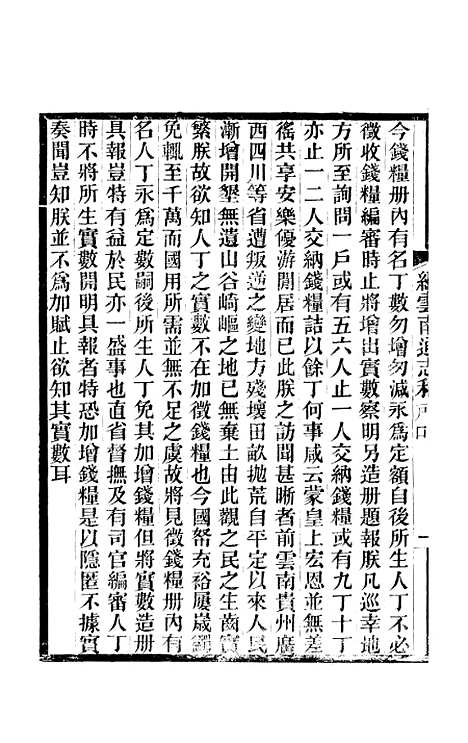 今錢糧册內有名丁數勿增勿減永爲定額自後所生人丁不必
徵收錢糧編審時止將增出實數察明另造册題報朕凡巡幸地
方所至詢問一戶或有五六人止一人交納錢糧或有九丁十丁
亦止一二人交納錢糧詰以餘丁何事咸云蒙皇上宏恩並無差
徭共享安樂優游閒居而已此朕之訪聞甚晰者前雲南貴州廣
西四川等省遭叛逆之變地方殘壞田畝抛荒自平定以來人民
漸增開墾無遺山谷崎嶇之地已無棄土由此觀之民之生齒實
繁朕故欲知人丁之實數不在加徵錢糧也今國帑充裕屢歲蠲
免輒至千萬而國用所需並無不足之虞故將見徵錢糧册內有
名人丁永爲定數嗣後所生人丁免其加增錢糧但將實數造册
具報豈特有益於民亦一盛事也直省督撫及有司官編審人丁
時不將所生實數開明具報者特恐加增錢糧是以隱匿不據實
奏聞豈知朕並不爲加賦止欲知其實數耳
續雲南通志稿 戶口 一